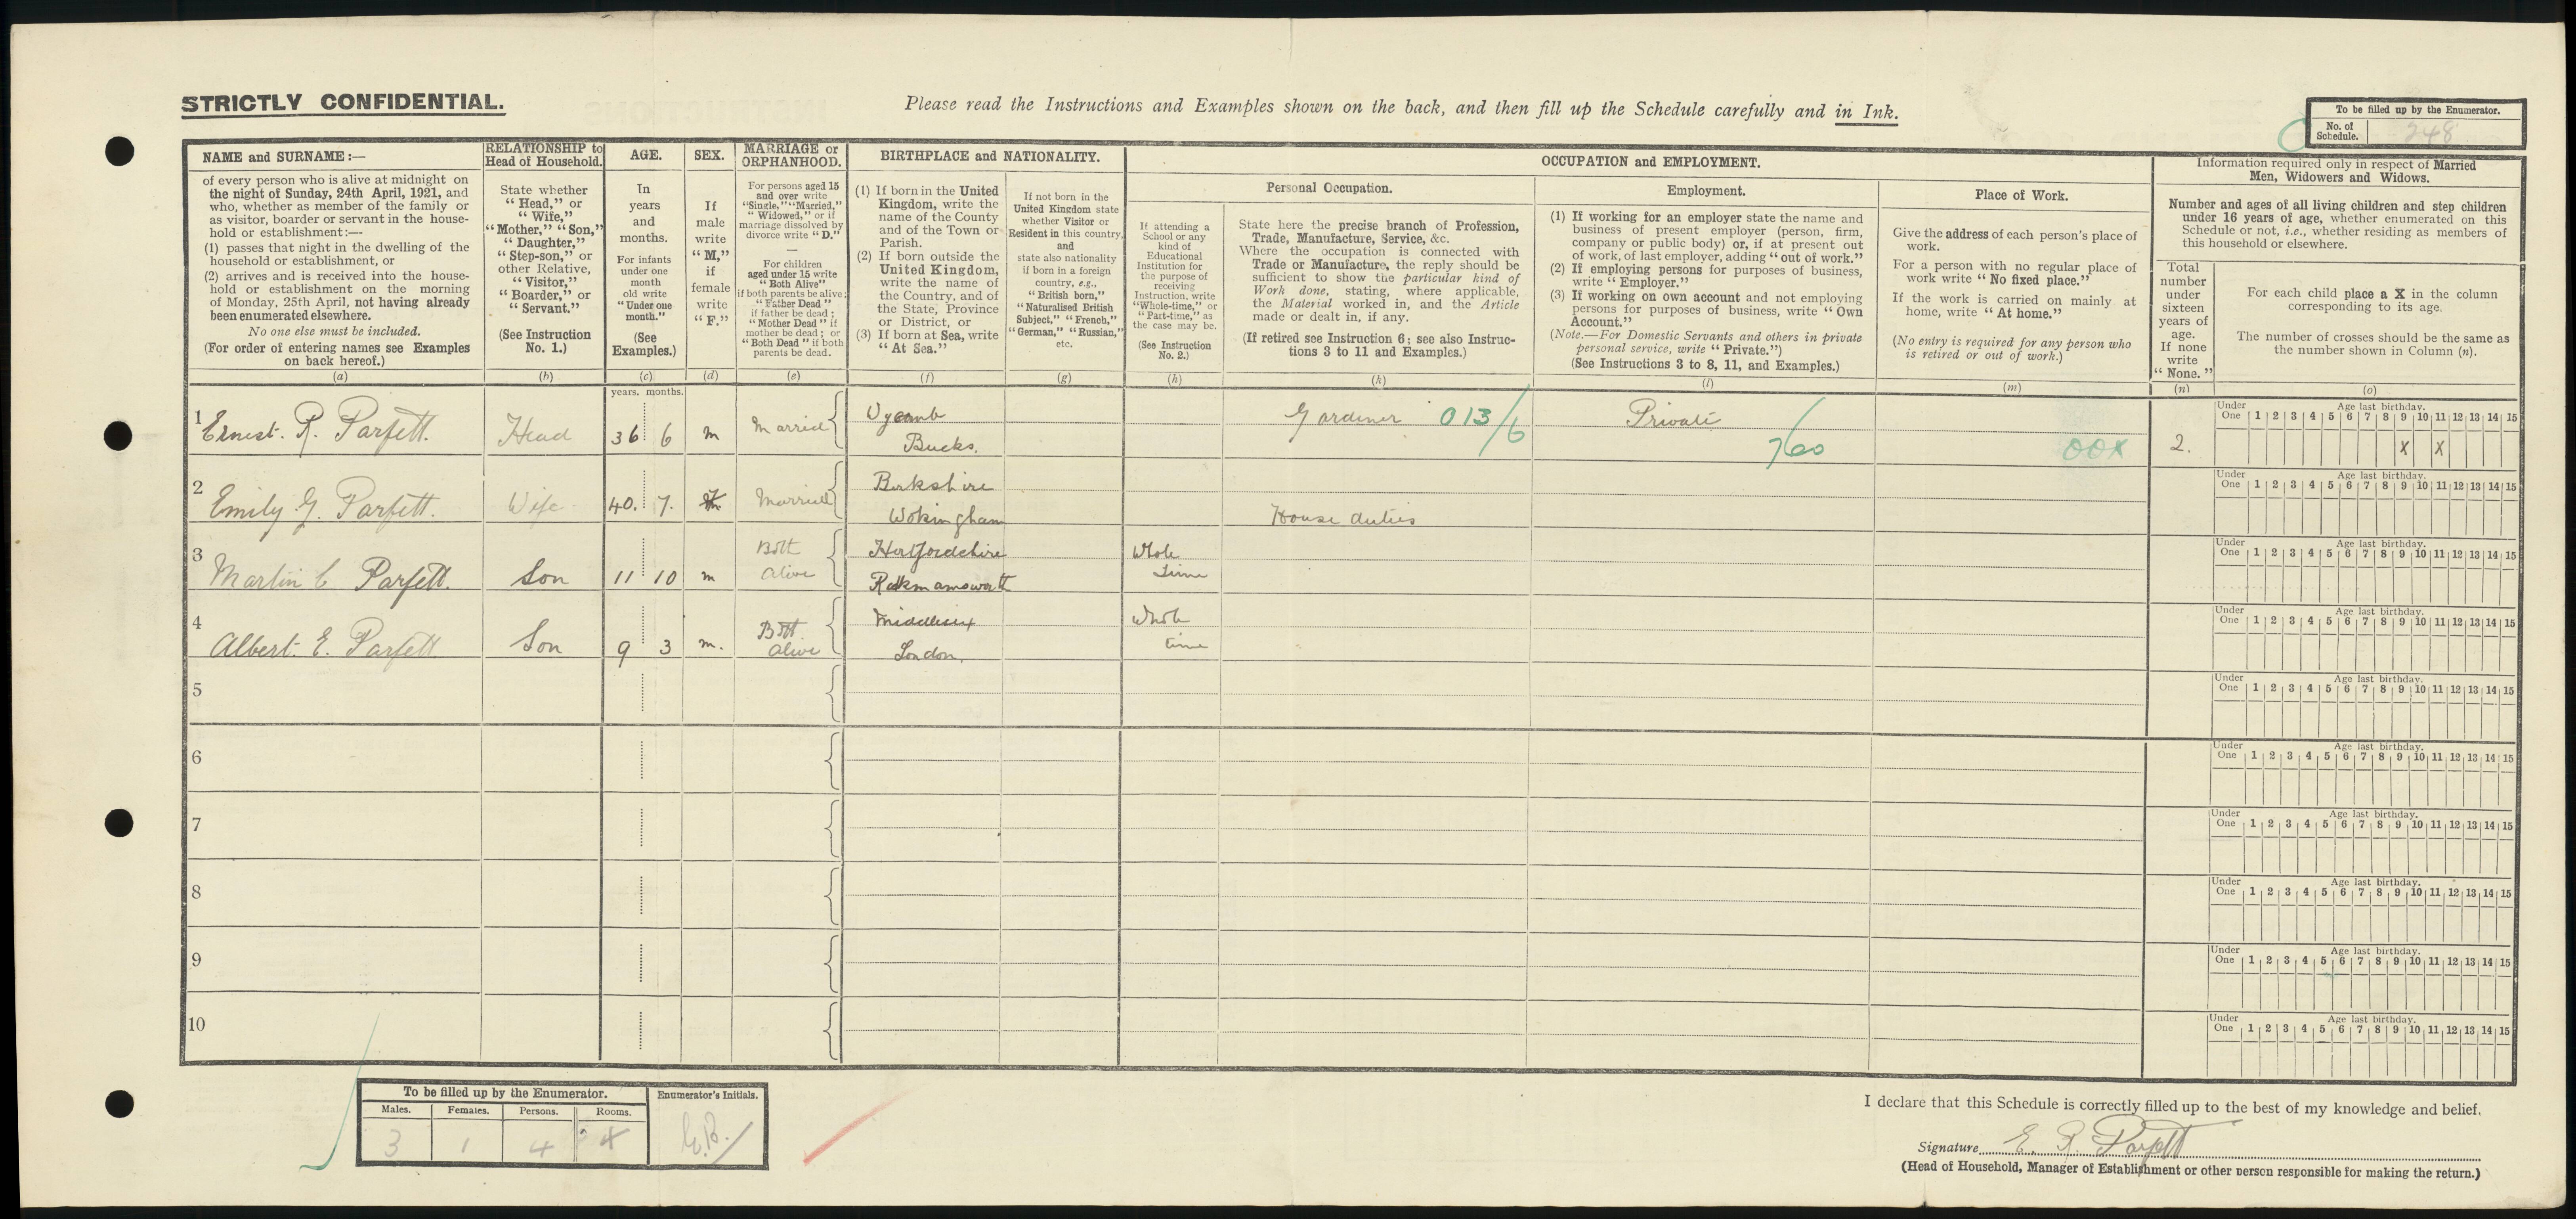 STRICTLY CONFIDENTIAL.
Please read the Instructions and Examples shown on the back, and then fill up the Schedule carefully and in Ink.
To be filled up by the Enumerator.
No. of Schedule. 248
NAME and SURNAME:—
of every person who is alive at midnight on
the night of Sunday, 24th April, 1921, and
who, whether as member of the family or
as visitor, boarder or servant in the house-
hold or establishment:—
(1) passes that night in the dwelling of the
household or establishment, or
(2) arrives and is received into the house-
hold or establishment on the morning
of Monday, 25th April, not having already
been enumerated elsewhere.
No one else must be included.
(For order of entering names see Examples
on back hereof.)
(a)
RELATIONSHIP to
Head of Household.
State whether
"Head," or
"Wife,"
"Mother," "Son,"
"Daughter,"
"Step-son," or
other Relative,
"Visitor,"
"Boarder," or
"Servant."
(See Instruction
No. 1.)
(b)
AGE.
In
years
and
months.
For infants
under one
month
old write
"Under one
month."
(See
Examples.)
(c)
SEX.
If
male
write
"M,"
if
female
write
"F."
(d)
MARRIAGE or
ORPHANHOOD.
For persons aged 15
and over write
"Single," "Married,"
"Widowed," or if
marriage dissolved by
divorce write "D."
—
For children
aged under 15 write
"Both Alive"
if both parents be alive;
"Father Dead"
if father be dead;
"Mother Dead" if
mother be dead; or
"Both Dead" if both
parents be dead.
(e)
BIRTHPLACE and NATIONALITY.
(1) If born in the United
Kingdom, write the
name of the County
and of the Town or
Parish.
(2) If born outside the
United Kingdom,
write the name of
the Country, and of
the State, Province
or District, or
(3) If born at Sea, write
"At Sea."
(f)
If not born in the
United Kingdom state
whether Visitor or
Resident in this country,
and
state also nationality
if born in a foreign
country, e.g.,
"British born,"
"Naturalised British
Subject," "French,"
"German," "Russian,"
etc.
(g)
OCCUPATION and EMPLOYMENT.
Personal Occupation.
If attending a
School or any
kind of
Educational
Institution for
the purpose of
receiving
Instruction, write
"Whole-time," or
"Part-time," as
the case may be.
(See Instruction
No. 2.)
(h)
State here the precise branch of Profession,
Trade, Manufacture, Service, &c.
Where the occupation is connected with
Trade or Manufacture, the reply should be
sufficient to show the particular kind of
Work done, stating, where applicable,
the Material worked in, and the Article
made or dealt in, if any.
(If retired see Instruction 6; see also Instruc-
tions 3 to 11 and Examples.)
(k)
Employment.
(1) If working for an employer state the name and
business of present employer (person, firm,
company or public body) or, if at present out
of work, of last employer, adding "out of work."
(2) If employing persons for purposes of business,
write "Employer."
(3) If working on own account and not employing
persons for purposes of business, write "Own
Account."
(Note.—For Domestic Servants and others in private
personal service, write "Private.")
(See Instructions 3 to 8, 11, and Examples.)
(l)
Place of Work.
Give the address of each person's place of
work.
For a person with no regular place of
work write "No fixed place."
If the work is carried on mainly at
home, write "At home."
(No entry is required for any person who
is retired or out of work.)
(m)
Information required only in respect of Married
Men, Widowers and Widows.
Number and ages of all living children and step children
under 16 years of age, whether enumerated on this
Schedule or not, i.e., whether residing as members of
this household or elsewhere.
Total
number
under
sixteen
years of
age.
If none
write
"None."
(n)
For each child place a X in the column
corresponding to its age.
The number of crosses should be the same as
the number shown in Column (n).
(o)
years. months.
Under One Age last birthday. 1 2 3 4 5 6 7 8 9 10 11 12 13 14 15
1 Ernest. R. Parfett. Head 36 6 m Married Wycomb Gardener 013/6 Private
Bucks. 760 00X 2. X X
Under One Age last birthday. 1 2 3 4 5 6 7 8 9 10 11 12 13 14 15
2 Emily. G. Parfett. Wife 40. 7. Married Berkshire
Wokingham House duties
Under One Age last birthday. 1 2 3 4 5 6 7 8 9 10 11 12 13 14 15
3 Martin C Parfett. Son 11 10 m Both Alive Hertfordshire Whole
Rickmansworth time
Under One Age last birthday. 1 2 3 4 5 6 7 8 9 10 11 12 13 14 15
4 Albert. E. Parfett Son 9 3 m. Both. Alive Middlesex Whole
London. time
5
Under One Age last birthday. 1 2 3 4 5 6 7 8 9 10 11 12 13 14 15
6
Under One Age last birthday. 1 2 3 4 5 6 7 8 9 10 11 12 13 14 15
7
Under One Age last birthday. 1 2 3 4 5 6 7 8 9 10 11 12 13 14 15
8
Under One Age last birthday. 1 2 3 4 5 6 7 8 9 10 11 12 13 14 15
9
Under One Age last birthday. 1 2 3 4 5 6 7 8 9 10 11 12 13 14 15
10
Under One Age last birthday. 1 2 3 4 5 6 7 8 9 10 11 12 13 14 15
To be filled up by the Enumerator.
Males. Females. Persons. Rooms.
3 1 4 4
Enumerator's Initials.
E.B.
I declare that this Schedule is correctly filled up to the best of my knowledge and belief.
Signature E. R. Parfett
(Head of Household, Manager of Establishment or other person responsible for making the return.)